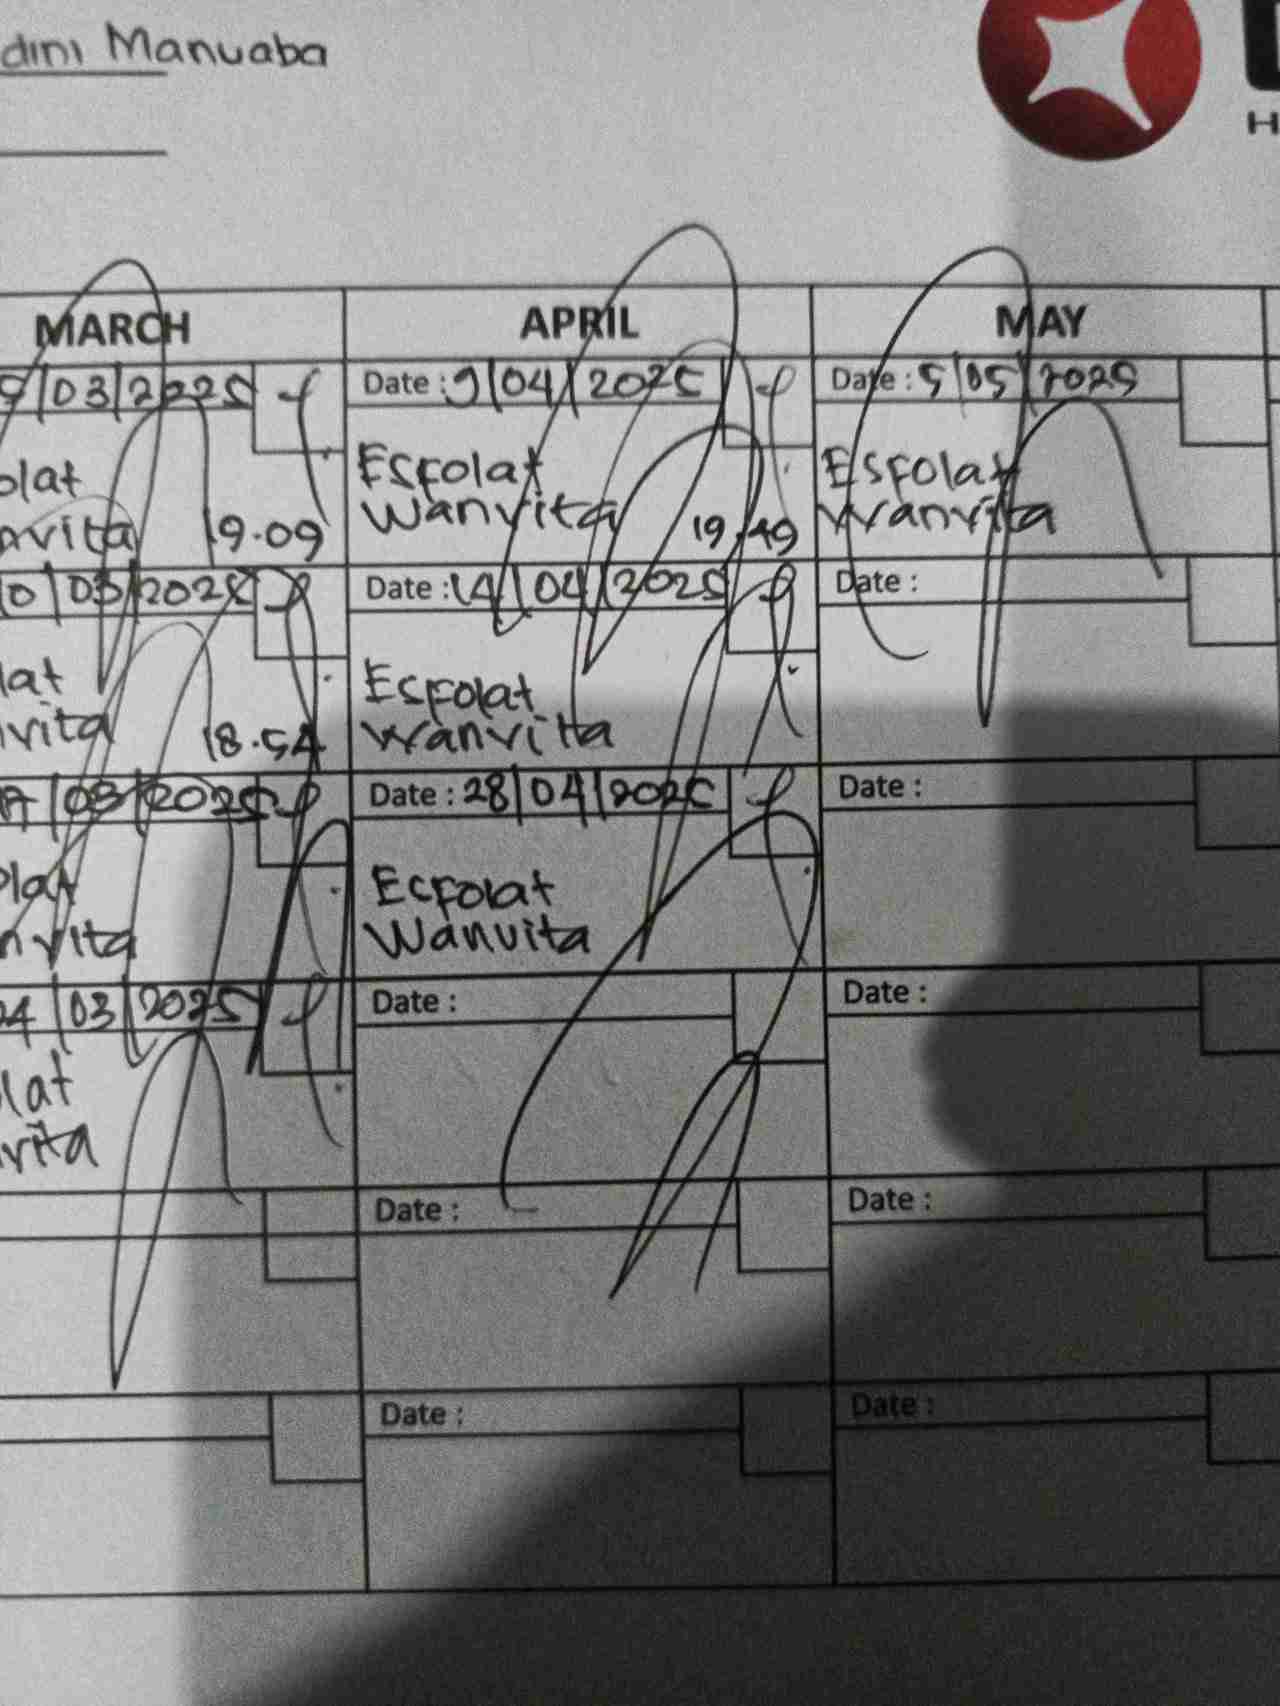 dini Manuaba
H
MARCH
APRIL
MAY
/03/2025
Date : 9/04/2025
Date : 5/05/2025
olat
Esfolat
Esfolat
nvita
19.09
Wanvita
19.49
Wanvita
0/03/2025
Date : 14/04/2025
Date :
lat
Esfolat
nvita
18.54
Wanvita
17/03/2025
Date : 28/04/2025
Date :
olat
Esfolat
nvita
Wanvita
24/03/2025
Date :
Date :
lat
vita
Date :
Date :
Date :
Date :